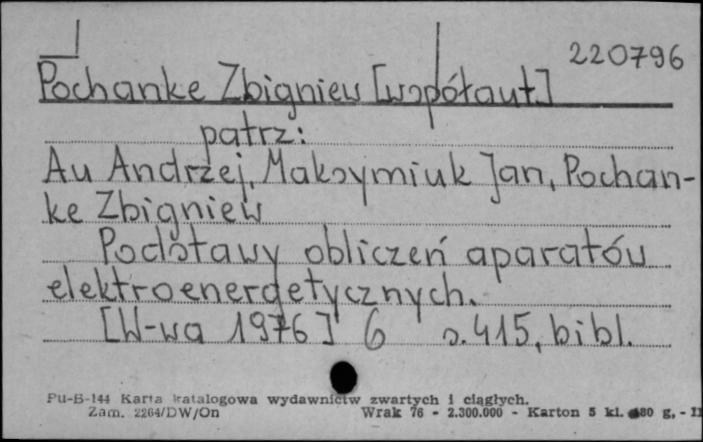 220796
Pochanke Zbigniew [współaut.]
patrz:
Au Andrzej, Maksymiuk Jan, Pochan-
ke Zbigniew
Podstawy obliczeń aparatów
elektroenergetycznych.
[W-wa 1976] 6 s. 415, bibl.
Pu-B-144 Karta katalogowa wydawnictw zwartych i ciągłych.
Zam. 2264/DW/On Wrak 76 - 2.300.000 - Karton 5 kl. g. -